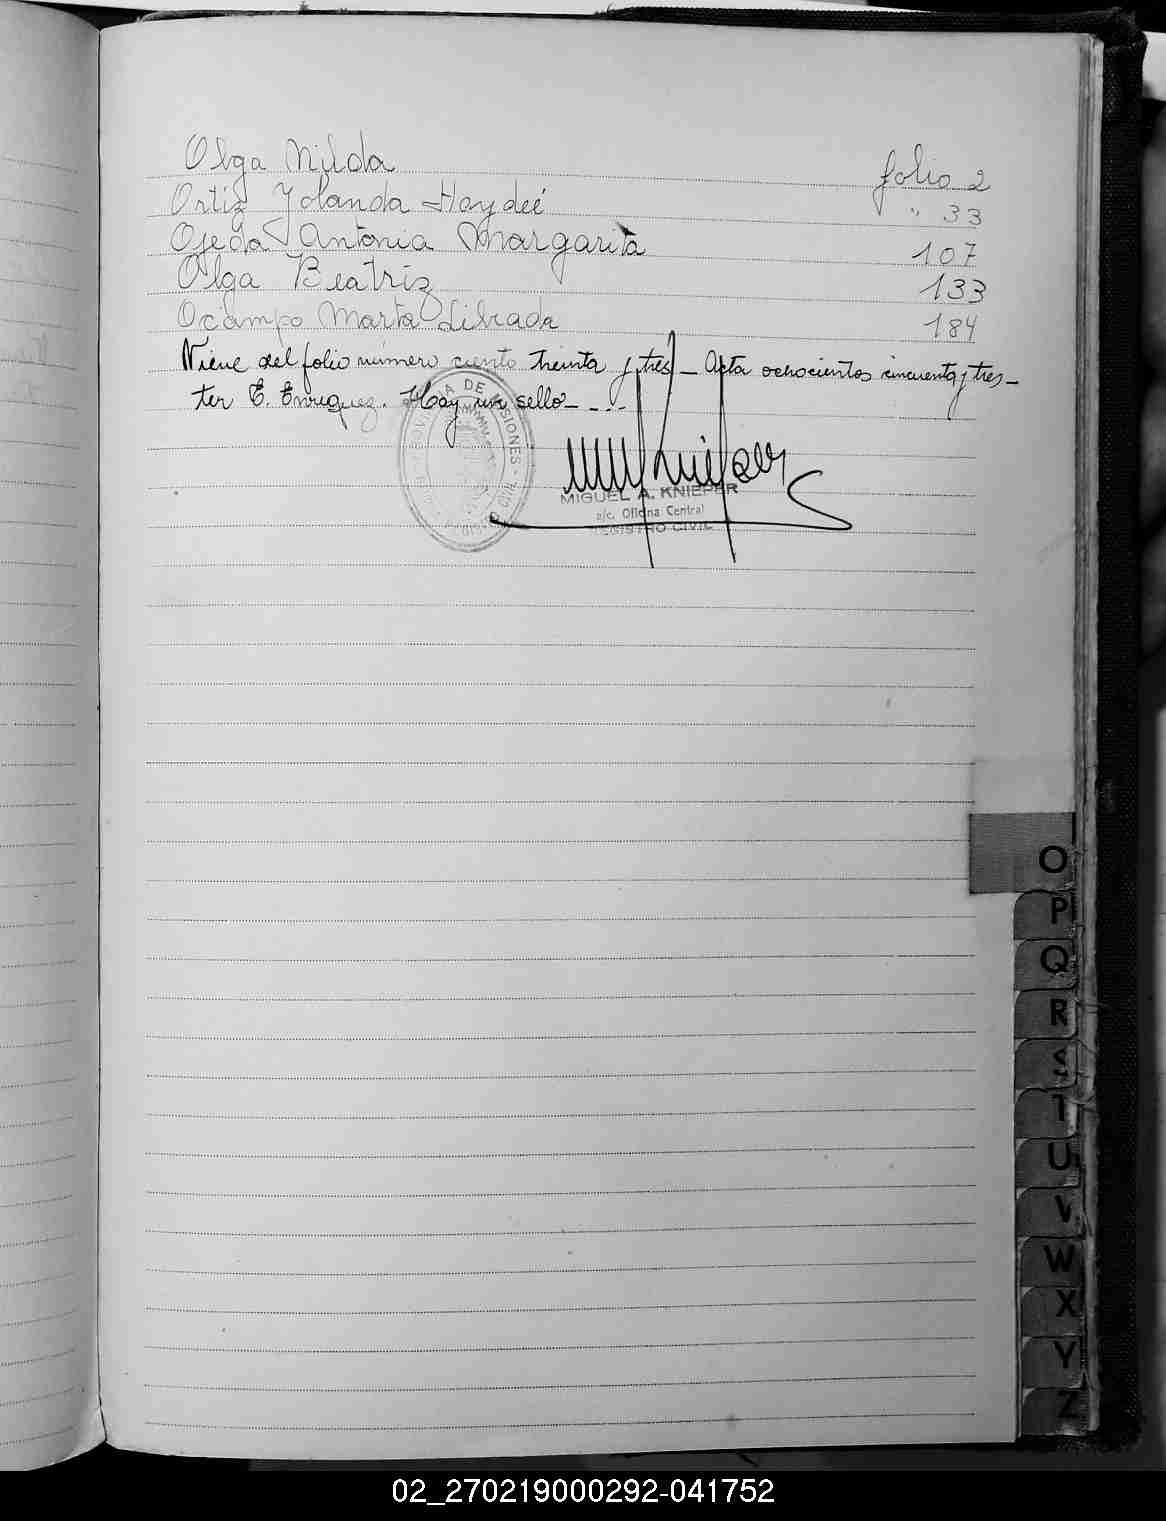 Olga Nilda folio 2
Ortiz Yolanda Haydeé " 33
Ojeda Antonia Margarita 107
Olga Beatriz 133
Ocampo Marta Librada 184
Viene del folio número ciento treinta y tres_ Acta ochocientos cincuenta y tres_
ter E. Enriquez. Hay un sello_ _ _ _
A DE MISIONES
MIGUEL A. KNIEPER
a/c. Oficina Central
REGISTRO CIVIL
O
P
Q
R
S
T
U
V
W
X
Y
Z
02_270219000292-041752